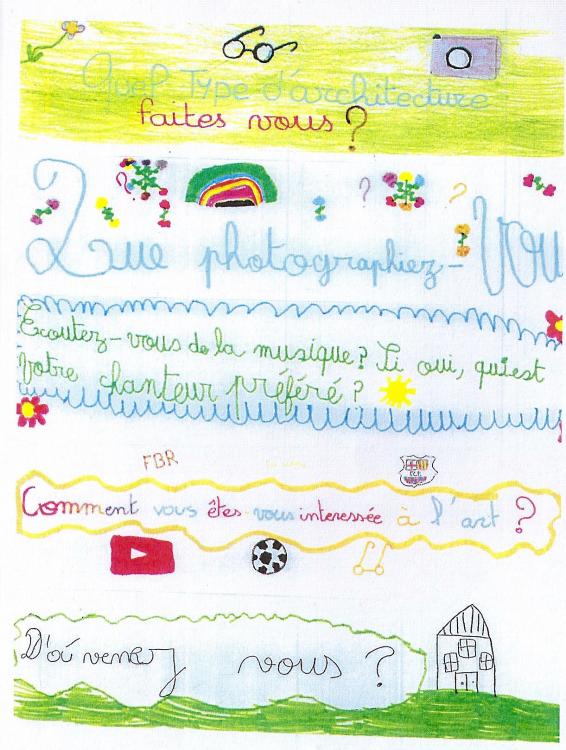 Quel Type d'architecture
faites vous ?
Que photographiez-vou
Ecoutez-vous de la musique ? Si oui, qui est
votre chanteur préféré ?
FBR
Comment vous êtes-vous interessée à l'art ?
D'où venez vous ?